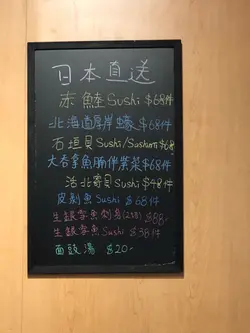 日本直送
赤鯥 Sushi $68/件
北海道厚岸蠔 $68/件
石垣貝 Sushi/Sashimi $68
大吞拿魚腩伴紫菜 $68/件
活北寄貝 Sushi $48/件
皮剥魚 Sushi $68件
生銀雪魚刺身(2件) $88-
生銀雪魚 Sushi $38件
面豉湯 $20-